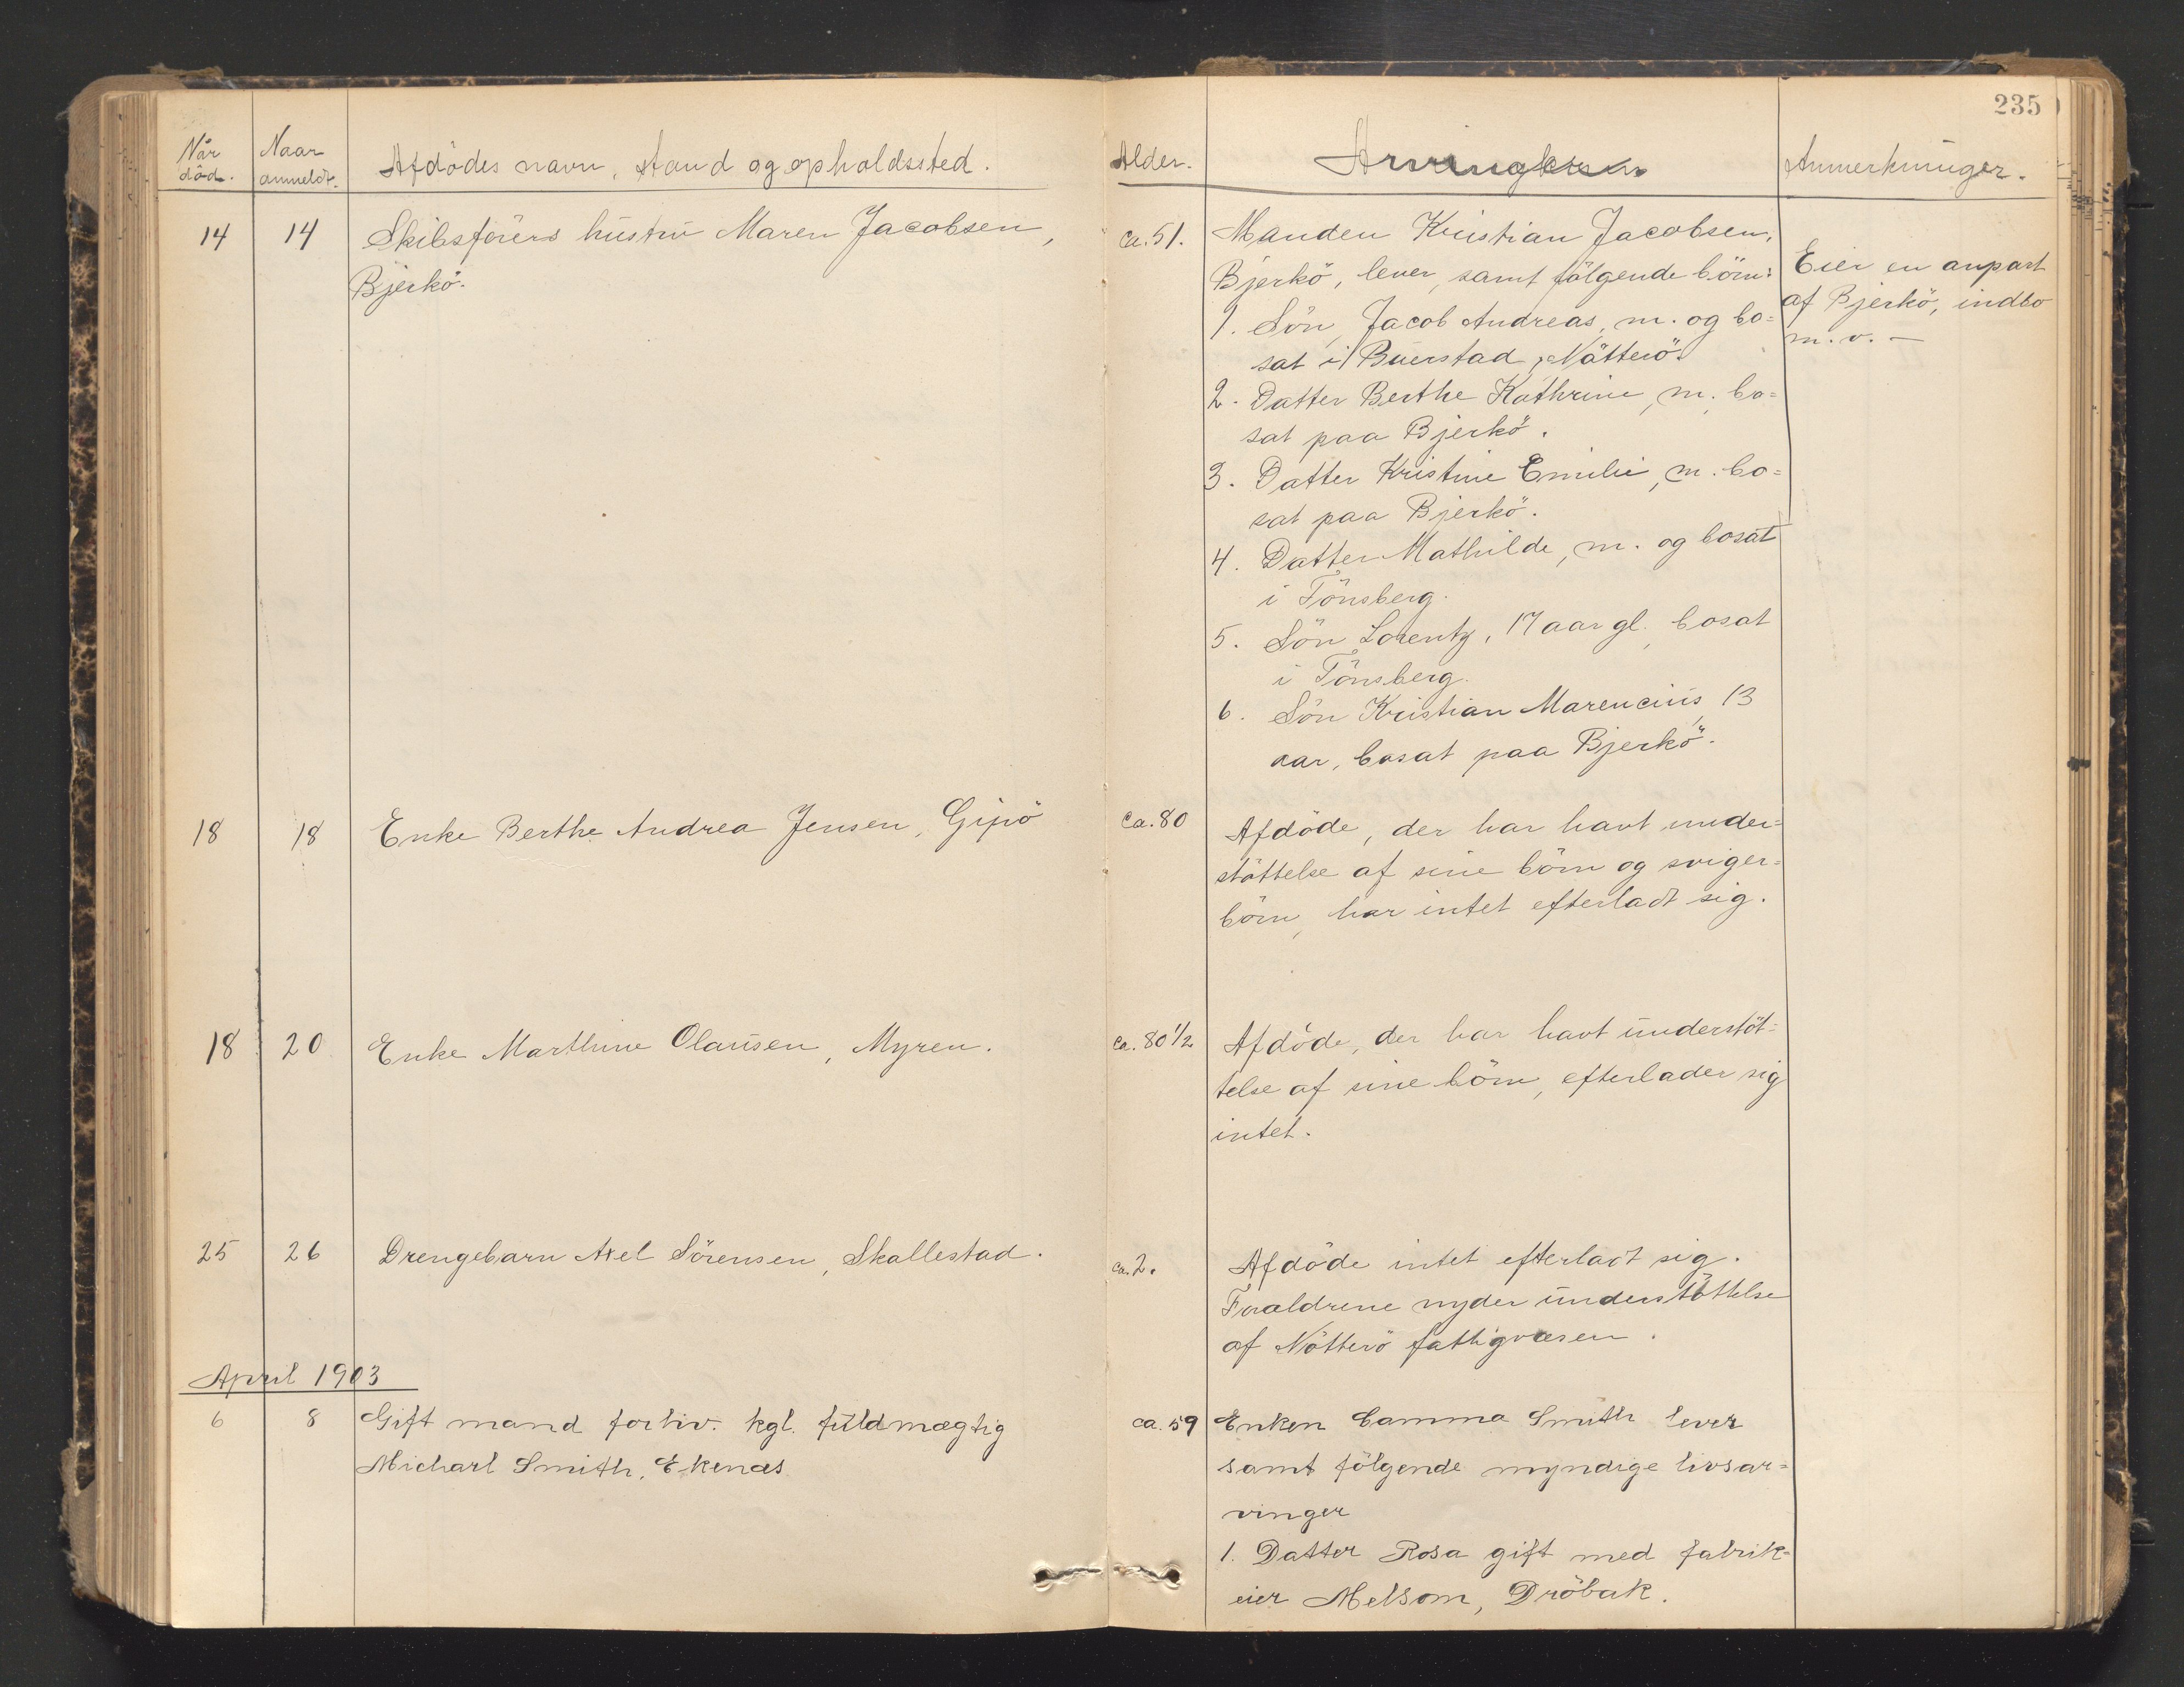 235
Når död. Naar anmeldt. Afdödes navn, stand og opholdssted. Alder. Arvinger Anmerkninger.
14 14 Skibsförers hustru Maren Jacobsen,
Bjerkö.
ca. 51. Manden Kristian Jacobsen,
Bjerkö, lever, samt fölgende börn:
1. Sön, Jacob Andreas, m. og bo=
sat i Buerstad, Nötterö.
2. Datter Berthe Kathrine, m. bo=
sat paa Bjerkö.
3. Datter Kristine Emilie, m. bo=
sat paa Bjerkö.
4. Datter Mathilde, m. og bosat
i Tönsberg.
5. Sön Lorentz, 17 aar gl. bosat
i Tönsberg.
6. Sön Kristian Marencius, 13
aar, bosat paa Bjerkö.
Eier en anpart
af Bjerkö, indbo
m. v. —
18 18 Enke Berthe Andrea Jensen, Gipö
ca. 80 Afdöde, der har havt under=
stöttelse af sine börn og sviger=
börn, har intet efterladt sig.
18 20 Enke Marthine Olausen, Myren.
ca. 80 1/2 Afdöde, der har havt understöt=
telse af sine börn, efterlader sig
intet.
25 26 Drengebarn Axel Sörensen, Skallestad.
ca. 2. Afdöde intet efterladt sig.
Forældrene nyder understöttelse
af Nötterö fattigvæsen.
April 1903
6 8 Gift mand forhv. kgl. fuldmægtig
Michael Smith, Ekenæs
ca. 59 Enken Camma Smith lever
samt fölgende myndige livsar=
vinger
1. Datter Rosa gift med fabrik=
eier Melsom, Dröbak.